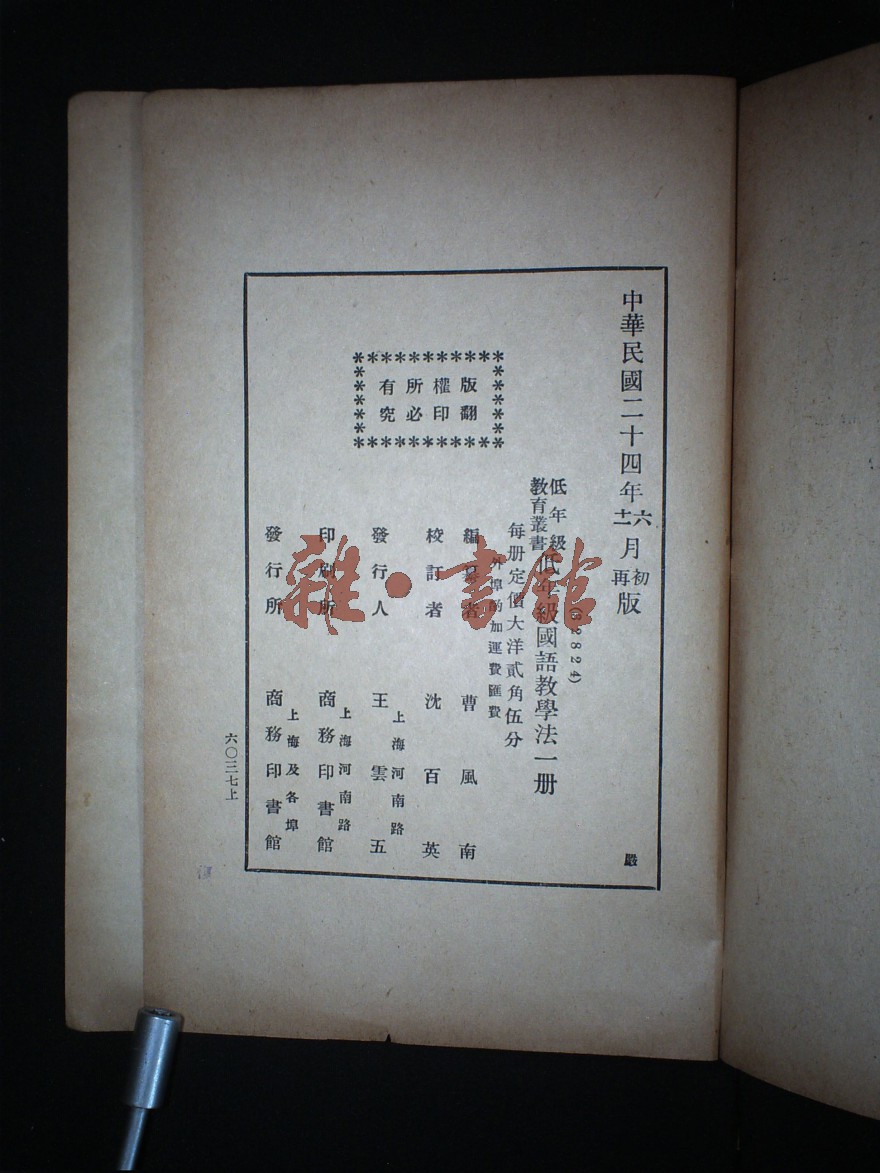 中華民國二十四年六月初版
十二再
(52824)
低年級
教育叢書
低年級國語教學法一册
每册定價大洋貳角伍分
外埠酌加運費匯費
版權所有
翻印必究
編纂者 曹風南
校訂者 沈百英
發行人 王雲五
上海河南路
印刷所 商務印書館
上海河南路
發行所 商務印書館
上海及各埠
嚴
六〇三七上
雜·書館